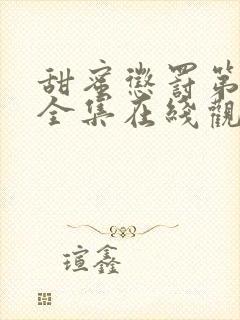 甜蜜懲罰第
全集在綫觀
瑄鑫